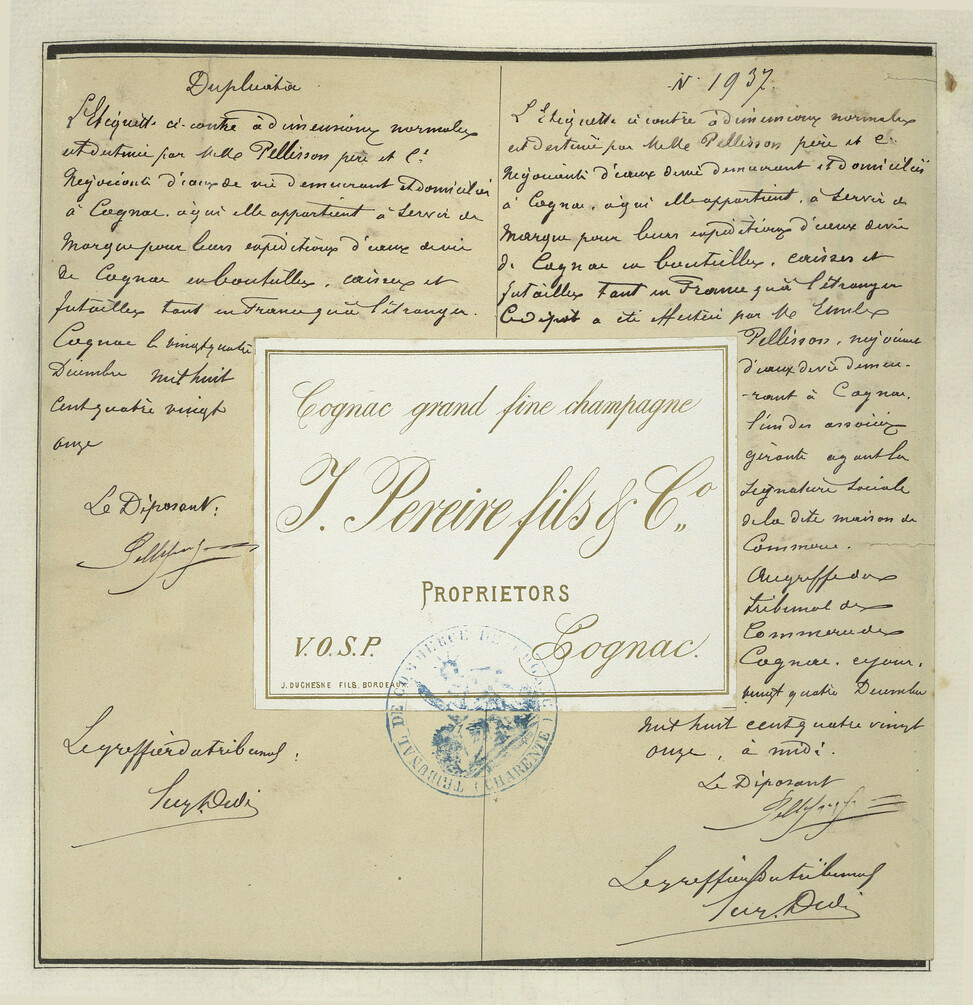 Duplicata
L'Etiquette ci-contre à dimensions normales
est destinée par MM. Pellisson père et Cie
Négociants d'eaux de vie demeurant et domiciliés
à Cognac, à qui elle appartient à servir de
Marque pour leurs expéditions d'eaux de vie
de Cognac en bouteilles, caisses et
futailles tant en France qu'à l'étranger.
Cognac le vingt quatre
Décembre mil huit
cent quatre vingt
onze
Le Déposant:
Le greffier du tribunal:
N° 1937.
L'Etiquette ci contre à dimensions normales
est destinée par MM. Pellisson père et Cie
Négociants d'eaux de vie demeurant et domiciliés
à Cognac, à qui elle appartient, à servir de
marque pour leurs expéditions d'eaux de vie
de Cognac en bouteilles, caisses et
futailles tant en France qu'à l'étranger
Ce dépôt a été effectué par M.
Pellisson, négociant
d'eaux de vie demeu-
-rant à Cognac,
l'un des associés
gérants ayant la
signature sociale
de la dite maison de
Commerce.
Au greffe du
tribunal de
Commerce de
Cognac, ce jour,
vingt quatre Décembre
mil huit cent quatre vingt
onze, à midi.
Le Déposant
Le greffier du tribunal
Cognac grand fine champagne
J. Pereire fils & Co
PROPRIETORS
V.O.S.P. Cognac.
J. DUCHESNE FILS, BORDEAUX
TRIBUNAL DE COMMERCE DE COGNAC (CHARENTE)